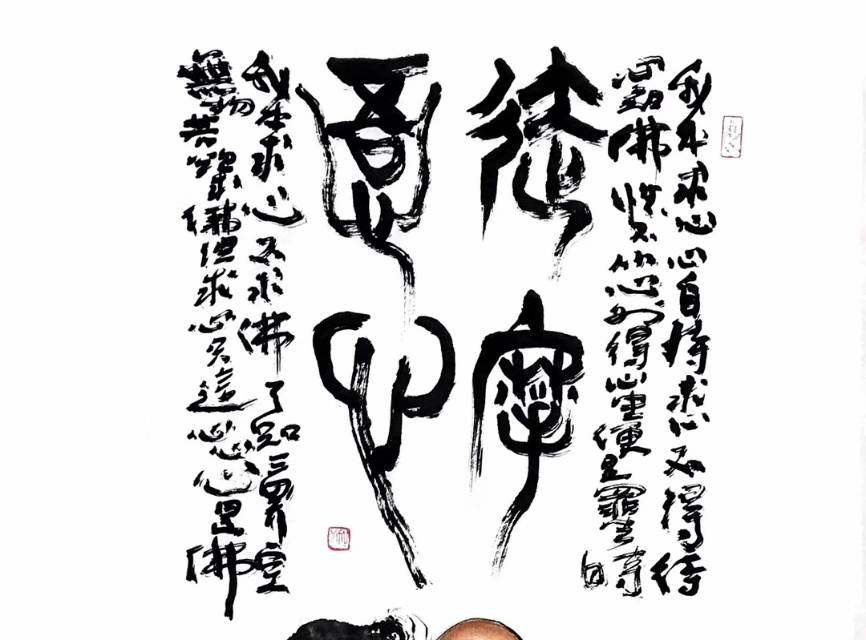 我本求心心自持求心不得待
心知佛性不從心外得心生便是罪生時
達摩
悟心
我本求心不求佛了知三界空
無物若欲求佛但求心只這心心心是佛